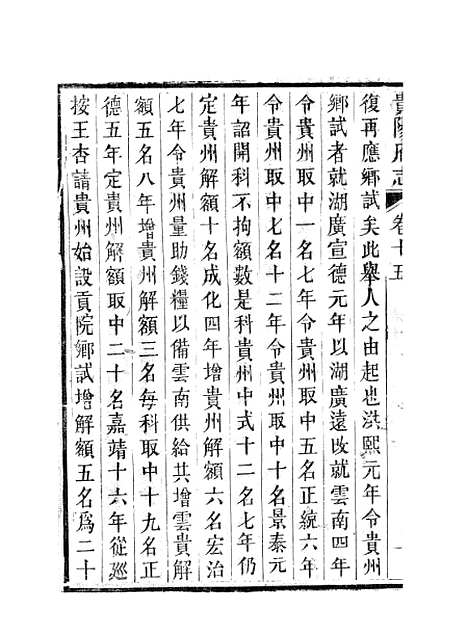 貴陽府志 卷十五
復再應鄉試矣此舉人之由起也洪熙元年令貴州
鄉試者就湖廣宣德元年以湖廣遠改就雲南四年
令貴州取中一名七年令貴州取中五名正統六年
令貴州取中七名十二年令貴州取中十名景泰元
年詔開科不拘額數是科貴州中式十二名七年仍
定貴州解額十名成化四年增貴州解額六名宏治
七年令貴州量助錢糧以備雲南供給共增雲貴解
額五名八年增貴州解額三名每科取中十九名正
德五年定貴州解額取中二十名嘉靖十六年從廵
按王杏請貴州始設貢院鄉試增解額五名為二十